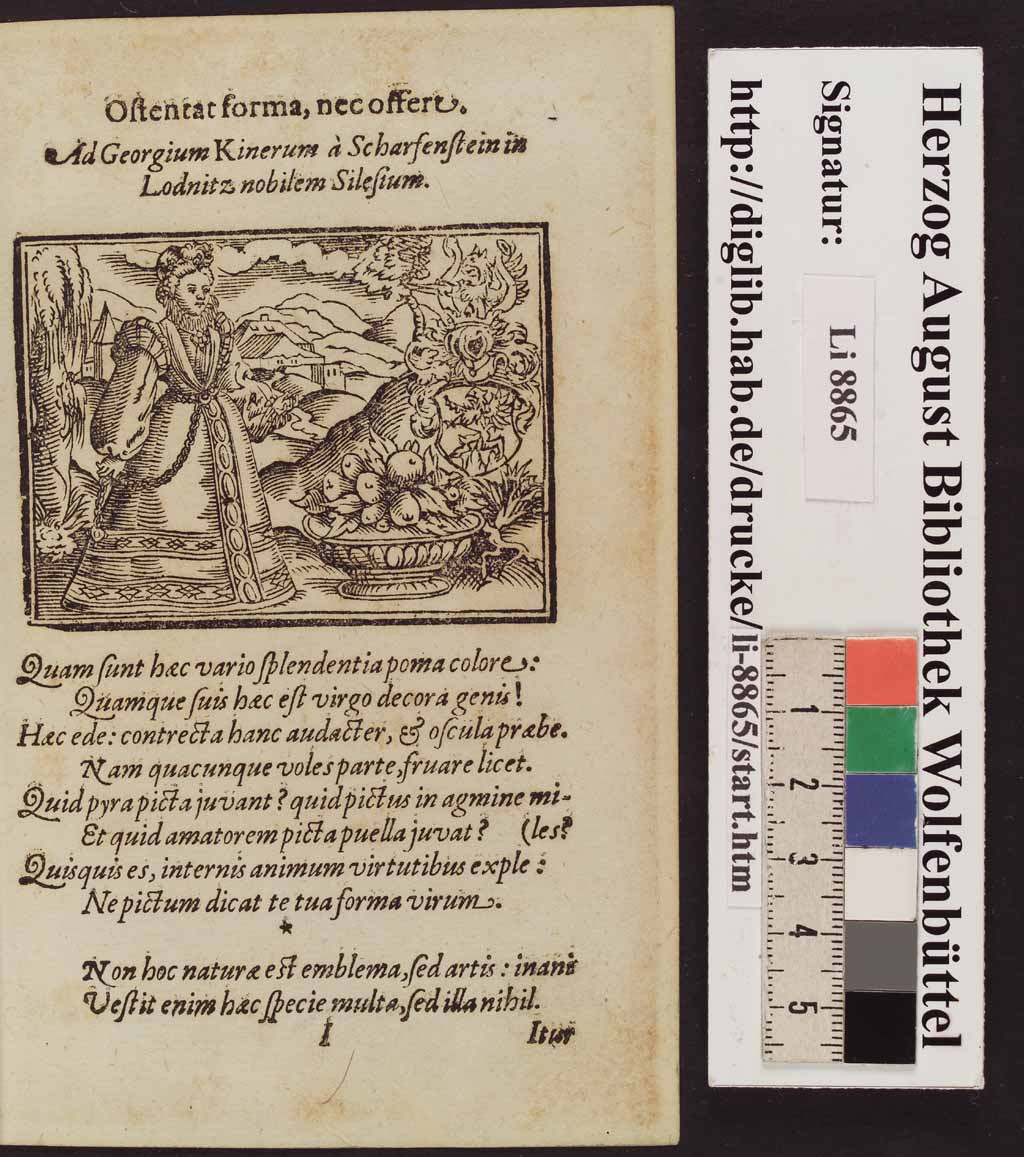 Oſtentat forma, nec offert.
Ad Georgium Kinerum à Scharfenſtein in
Lodnitz nobilem Sileſium.
Quam ſunt hæc vario ſplendentia poma colore:
Quamque ſuis hæc eſt virgo decora genis!
Hæc ede: contrecta hanc audacter, & oſcula præbe.
Nam quacunque voles parte, fruare licet.
Quid pyra picta juvant? quid pictus in agmine mi-
Et quid amatorem picta puella juvat? (les?
Quisquis es, internis animum virtutibus exple:
Ne pictum dicat te tua forma virum.
*
Non hoc naturæ eſt emblema, ſed artis: inani
Veſtit enim hæc ſpecie multa, ſed illa nihil.
I Itur
Herzog August Bibliothek Wolfenbüttel
Signatur: Li 8865
http://diglib.hab.de/drucke/li-8865/start.htm
1
2
3
4
5